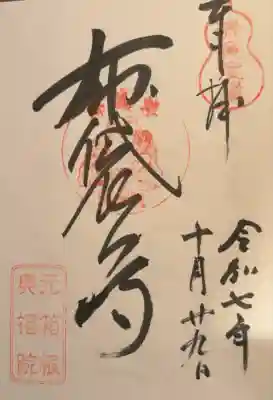 奉拝
令和七年
十月廿九日
布袋尊
元箱根
興福院